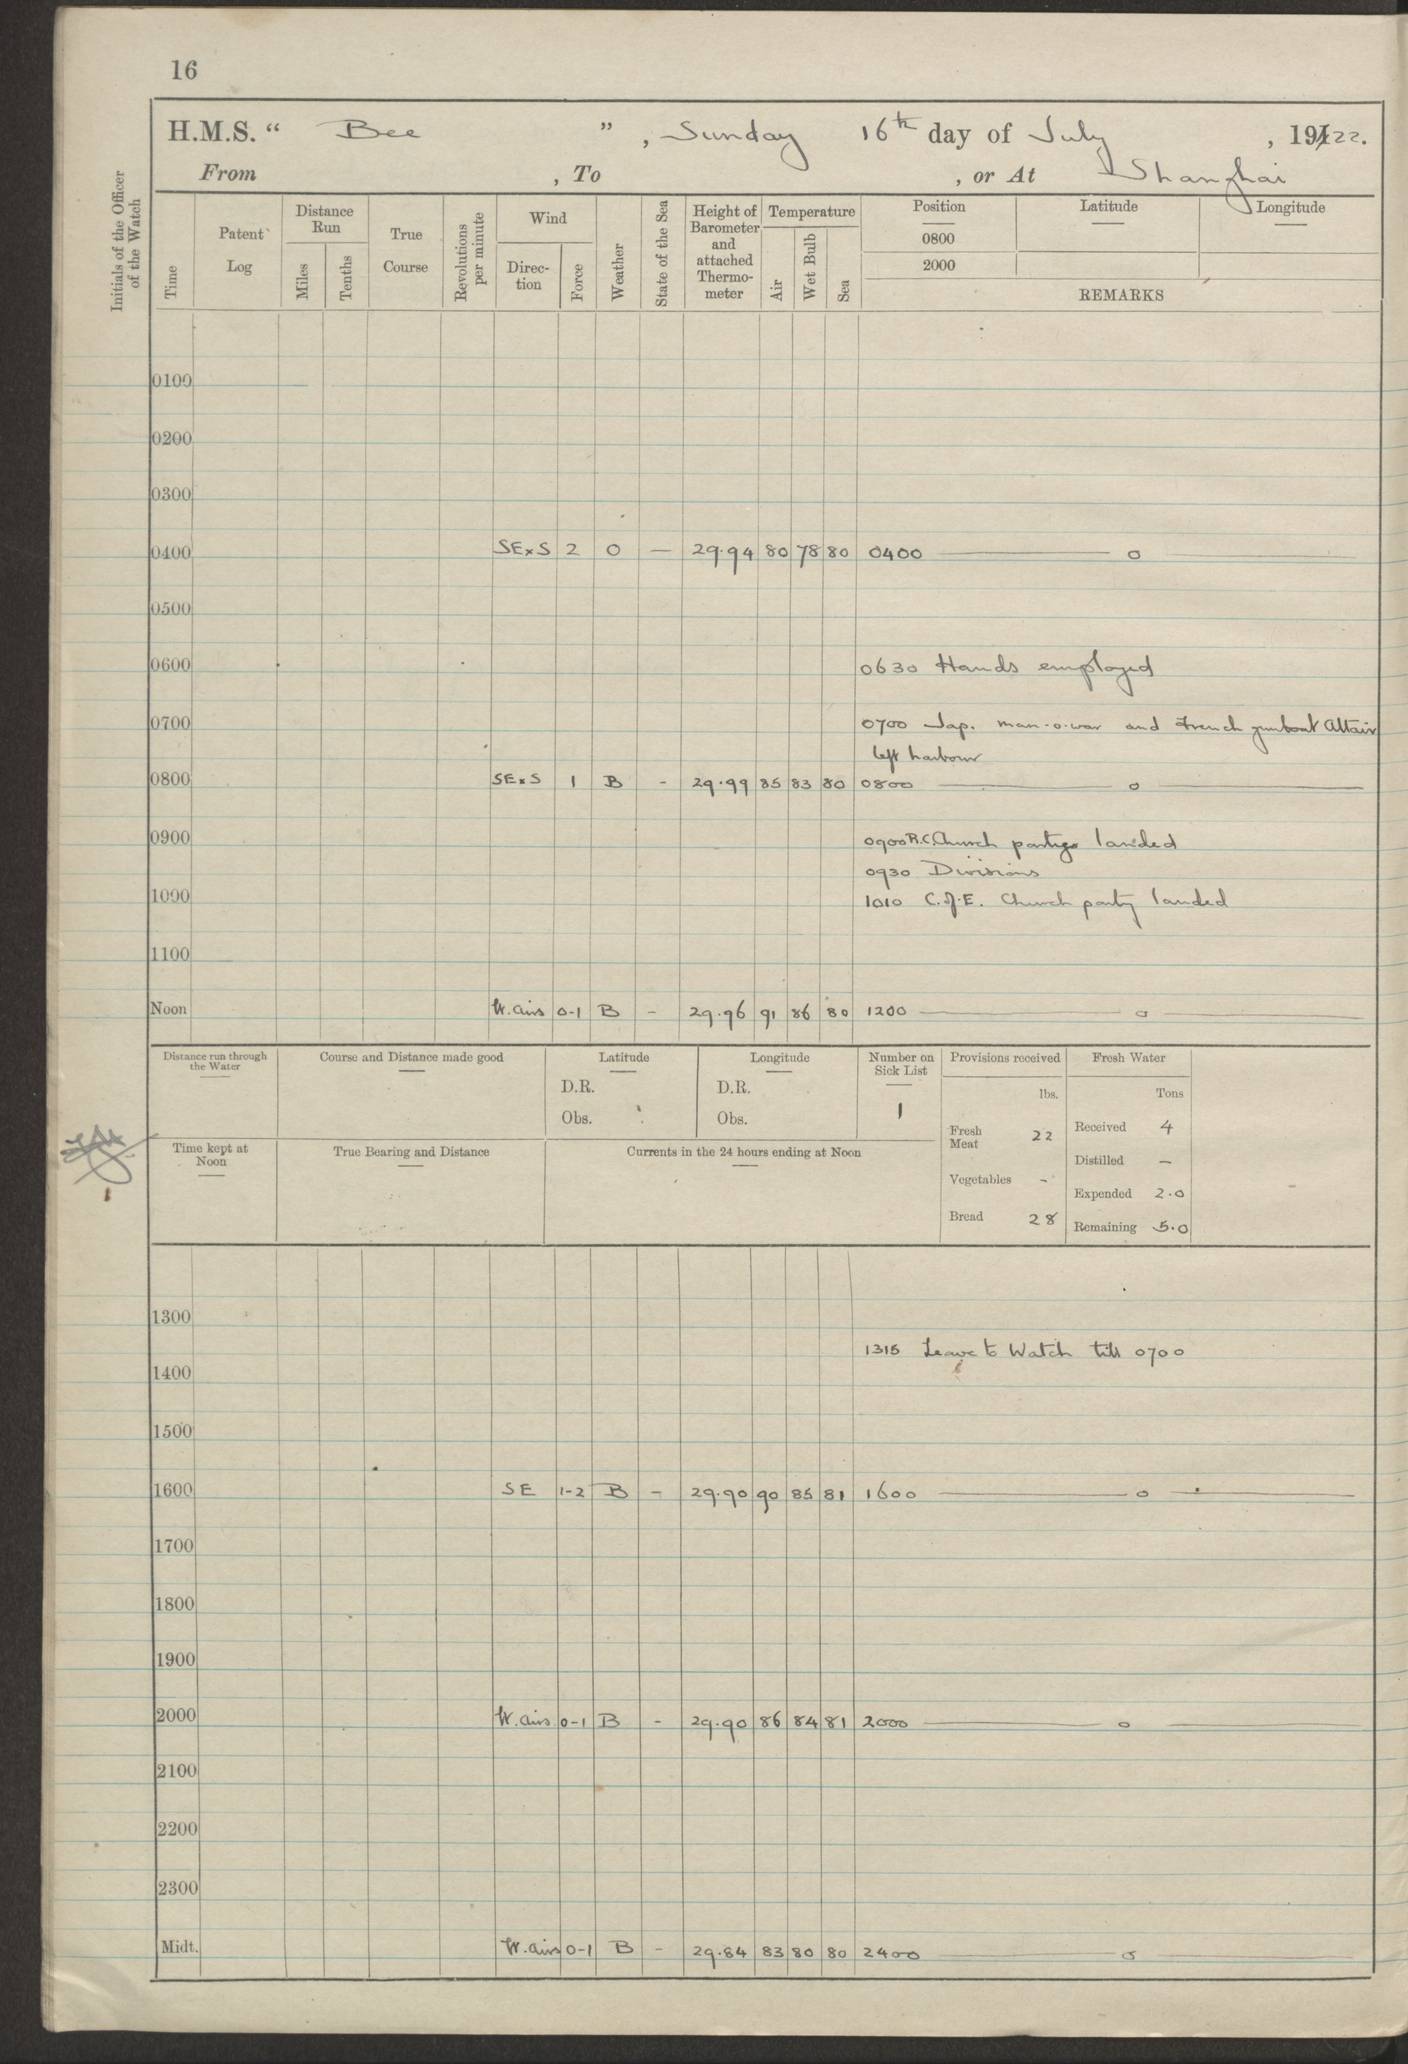 16
H.M.S. “ Bee ” , Sunday 16th day of July , 1922.
From , To , or At Shanghai
Initials of the Officer of the Watch
Time
Patent Log
Distance Run
Miles
Tenths
True Course
Revolutions per minute
Wind
Direc- tion
Force
Weather
State of the Sea
Height of Barometer and attached Thermo- meter
Temperature
Air
Wet Bulb
Sea
Position Latitude Longitude
0800
2000
REMARKS
0100
0200
0300
0400 SE x S 2 O — 29.94 80 78 80 0400 ——— o ———
0500
0600
0630 Hands employed
0700
0700 Jap. man-o-war and French gunboat Altair
left harbour
0800 SE x S 1 B - 29.99 85 83 80 0800 ——— o ———
0900
0900 R.C. Church party landed
0930 Divisions
1000
1010 C. of E. Church party landed
1100
Noon W. airs 0-1 B - 29.96 91 86 80 1200 ——— o ———
Distance run through the Water
Course and Distance made good
Latitude
D.R.
Obs.
Longitude
D.R.
Obs.
Number on Sick List
1
Provisions received
lbs.
Fresh Meat 22
Vegetables -
Bread 28
Fresh Water
Tons
Received 4
Distilled —
Expended 2.0
Remaining 5.0
Time kept at Noon
True Bearing and Distance
Currents in the 24 hours ending at Noon
1300
1315 Leave to Watch till 0700
1400
1500
1600 SE 1-2 B - 29.90 90 85 81 1600 ——— o ———
1700
1800
1900
2000 W. airs 0-1 B - 29.90 86 84 81 2000 ——— o ———
2100
2200
2300
Midt. W. airs 0-1 B - 29.84 83 80 80 2400 ——— o ———